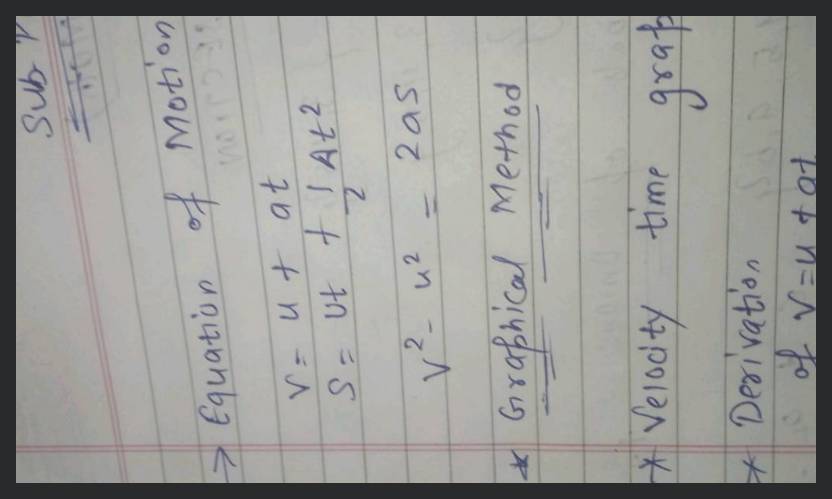 Sub
→ Equation of Motion
v = u + at
S = ut + 1/2 At²
v² - u² = 2as
* Graphical Method
* Velocity time grap
* Derivation
of v = u + at